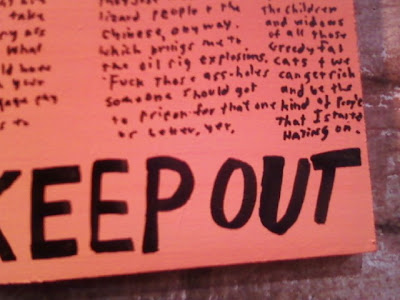 take
What
your
pay
to
lizard people & the
Chinese, anyway.
Which brings me to
the oil rig explosions.
Fuck those ass-holes
someone should got
to prison for that one
or better, yet.
The children
and widows
of all those
Greedy Fat
cats & we
can get rich
and be the
kind of People
That I started
Hating on.
KEEP OUT